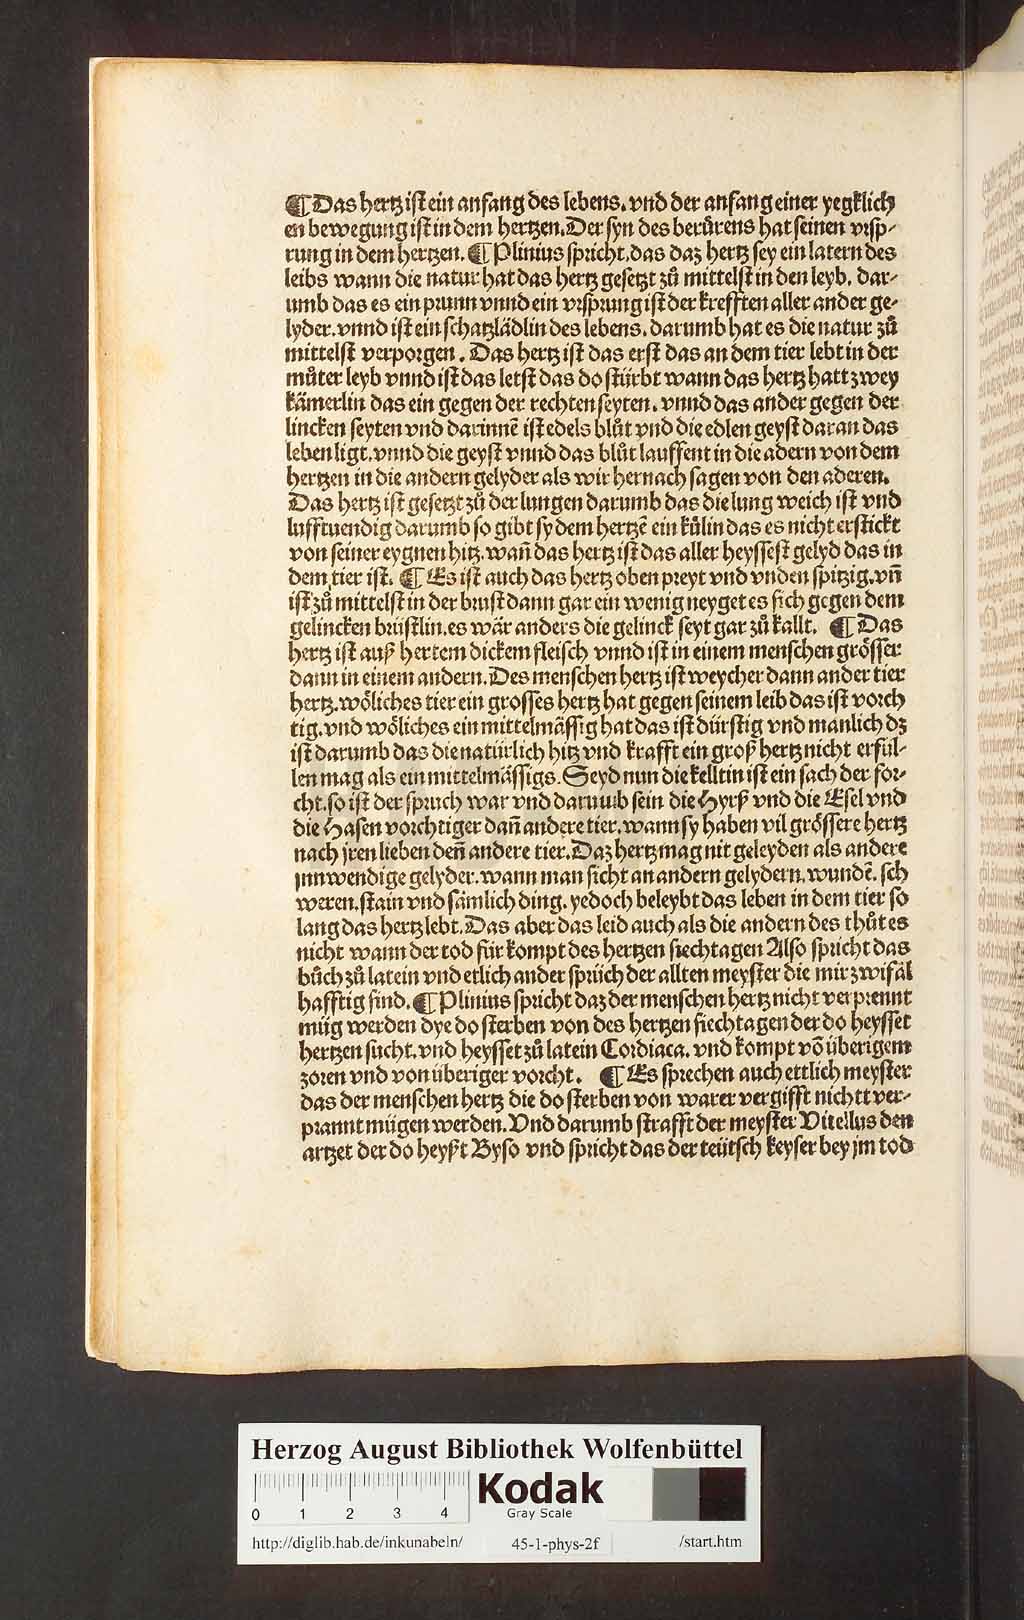 ¶ Das hertz ist ein anfang des lebens. vnd der anfang einer yegklich
en bewegung ist in dem hertzen. Der syn des berürens hat seinen vrsp-
rung in dem hertzen. ¶ Plinius spricht. das daz hertz sey ein latern des
leibs wann die natur hat das hertz gesetzt zů mittelst in den leyb. dar-
umb das es ein prunn vnnd ein vrsprung ist der krefften aller ander ge-
lyder. vnnd ist ein schatzlådlin des lebens. darumb hat es die natur zů
mittelst verporgen. Das hertz ist das erst das an dem tier lebt in der
můter leyb vnnd ist das letst das do stürbt wann das hertz hatt zwey
kåmerlin das ein gegen der rechten seyten. vnnd das ander gegen der
lincken seyten vnd darinnē ist edels blůt vnd die edlen geyst daran das
leben ligt. vnnd die geyst vnnd das blůt lauffent in die adern von dem
hertzen in die andern gelyder als wir hernach sagen von den aderen.
Das hertz ist gesetzt zů der lungen darumb das die lung weich ist vnd
lufftuendig darumb so gibt sy dem hertzē ein kůlin das es nicht erstickt
von seiner eygnen hitz. wañ das hertz ist das aller heyssest gelyd das in
dem tier ist. ¶ Es ist auch das hertz oben preyt vnd vnden spitzig. vñ
ist zů mittelst in der brust dann gar ein wenig neyget es sich gegen dem
gelincken brüstlin. es wår anders die gelinck seyt gar zů kallt. ¶ Das
hertz ist auß hertem dickem fleisch vnnd ist in einem menschen grősser
dann in einem andern. Des menschen hertz ist weycher dann ander tier
hertz. wőliches tier ein grosses hertz hat gegen seinem leib das ist vorch
tig. vnd wőliches ein mittelmåssig hat das ist dürstig vnd manlich dz
ist darumb das die natürlich hitz vnd krafft ein groß hertz nicht erfül-
len mag als ein mittelmåssigs. Seyd nun die kelltin ist ein sach der for-
cht. so ist der spruch war vnd darumb sein die Hyrß vnd die Esel vnd
die Hasen vorchtiger dañ andere tier. wann sy haben vil grőssere hertz
nach jren lieben deñ andere tier. Daz hertz mag nit geleyden als andere
jnnwendige gelyder. wann man sicht an andern gelydern. wundē. sch
weren. stain vnd såmlich ding. yedoch beleybt das leben in dem tier so
lang das hertz lebt. Das aber das leid auch als die andern des thůt es
nicht wann der tod für kompt des hertzen siechtagen Also spricht das
bůch zů latein vnd etlich ander sprüch der allten meyster die mir zwifål
hafftig sind. ¶ Plinius spricht daz der menschen hertz nicht verprennt
müg werden dye do sterben von des hertzen siechtagen der do heysset
hertzen sucht. vnd heysset zů latein Cordiaca. vnd kompt vō überigem
zoren vnd von überiger vorcht. ¶ Es sprechen auch ettlich meyster
das der menschen hertz die do sterben von warer vergifft nichtt ver-
prannt mügen werden. Vnd darumb strafft der meyster Vitellus den
artzet der do heyßt Byso vnd spricht das der teütsch keyser bey jm tod
Herzog August Bibliothek Wolfenbüttel
0 1 2 3 4
Kodak
Gray Scale
http://diglib.hab.de/inkunabeln/ 45-1-phys-2f /start.htm